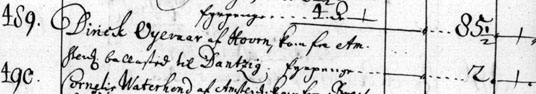 fyrpenge 4 R 1
489. Dirick Oyeraar af Hoorn, kom fra Am- 85½ 1
sterd. ballasted til Dantzig. fyrpenge 2 1
490. Cornelis Waterhond af Amsterd. kom fra